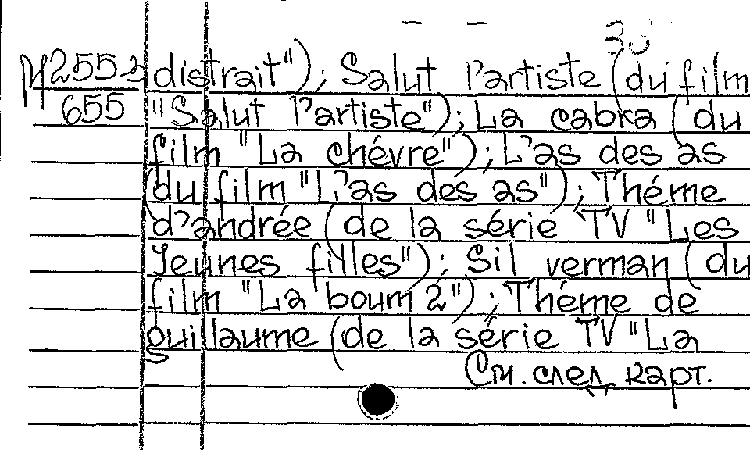 distrait"); Salut l'artiste (du film
"Salut l'artiste"); La cabka (du
film "La chévre"); L'as des as
(du film "L'as des as"); Théme
d'andrée (de la série TV "Les
Jeunes filles"); Sil verman (du
film "La boum 2"); Théme de
guillaume (de la série TV "La
См. след. карт.
655